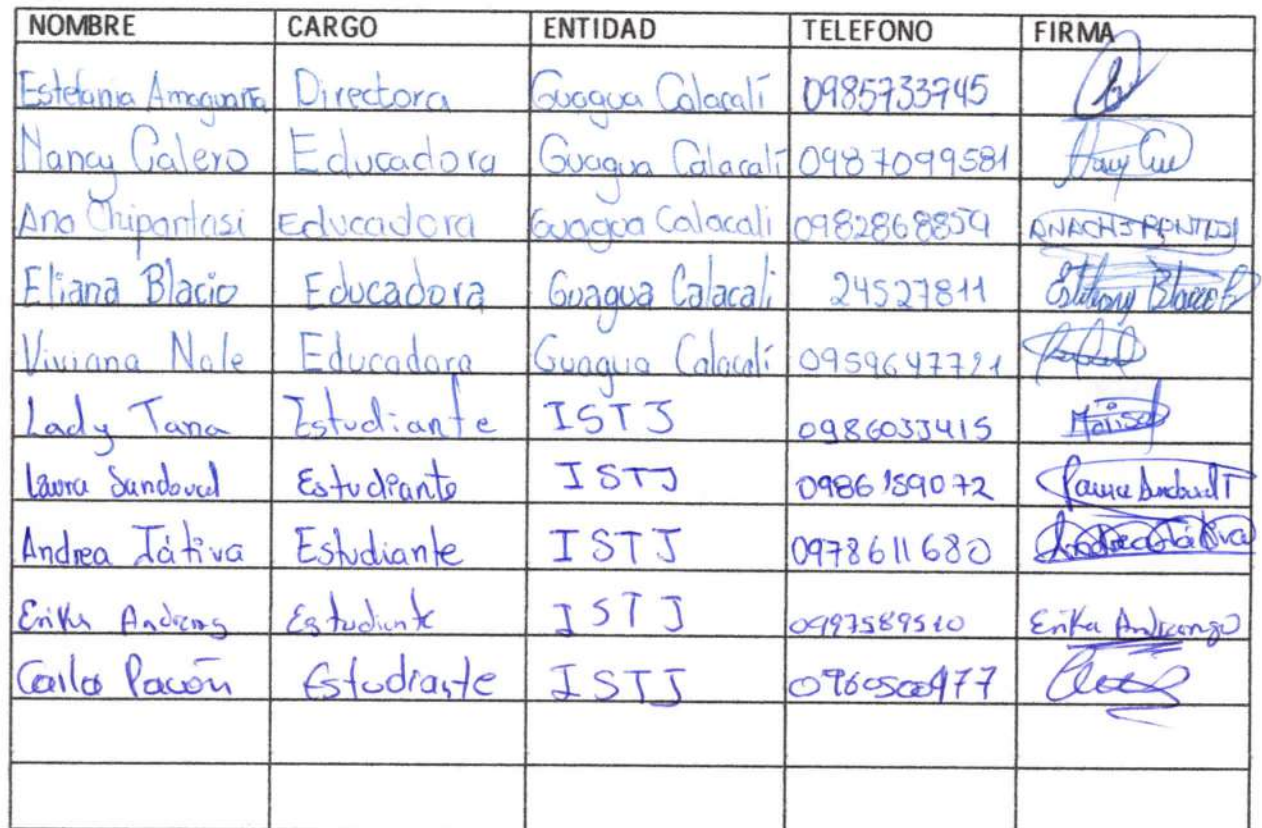 NOMBRE CARGO ENTIDAD TELEFONO FIRMA
Estefania Amaguaña Directora Guagua Calacalí 0985733745
Nancy Calero Educadora Guagua Calacalí 0987099581
Ana Chipantasi Educadora Guagua Calacali 0982868859 ANACHIPANTASI
Eliana Blacio Educadora Guagua Calacali 24527811 Blacio
Viviana Nale Educadora Guagua Calacalí 0959647721
Lady Tana Estudiante ISTJ 0986033415
Laura Sandoval Estudiante ISTJ 0986159072 Laura Sandoval T
Andrea Játiva Estudiante ISTJ 0978611680 Andrea Játiva
Erika Andrang Estudiante ISTJ 0997589510 Erika Andrango
Carlos Pavón Estudiante ISTJ